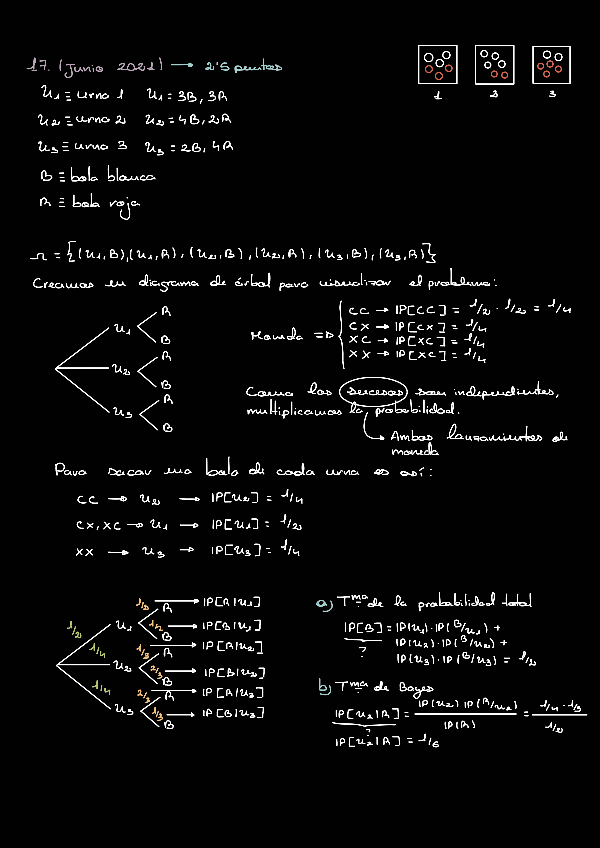 17. (Junio 2021) → 2'5 puntos
1 2 3
U1 ≡ urna 1 U1 = 3B, 3R
U2 ≡ urna 2 U2 = 4B, 2R
U3 ≡ urna 3 U3 = 2B, 4R
B ≡ bola blanca
R ≡ bola roja
Ω = {(U1,B),(U1,R),(U2,B),(U2,R),(U3,B),(U3,R)}
Creamos un diagrama de árbol para visualizar el problema:
U1 R B
U2 R B
U3 R B
Moneda ⇒
CC → IP[CC] = 1/2 · 1/2 = 1/4
CX → IP[CX] = 1/4
XC → IP[XC] = 1/4
XX → IP[XC] = 1/4
Como los sucesos son independientes,
multiplicamos la probabilidad.
Ambos lanzamientos de
moneda
Para sacar una bola de cada urna es así:
CC → U2 → IP[U2] = 1/4
CX, XC → U1 → IP[U1] = 1/2
XX → U3 → IP[U3] = 1/4
1/2 U1 1/2 R → IP[R|U1]
1/2 B → IP[B|U1]
1/4 U2 1/3 R → IP[R|U2]
2/3 B → IP[B|U2]
1/4 U3 2/3 R → IP[R|U3]
1/3 B → IP[B|U3]
a) Tma de la probabilidad total
IP[B] = IP(U1)·IP(B/U1) +
? IP(U2)·IP(B/U2) +
IP(U3)·IP(B/U3) = 1/2
b) Tma de Bayes
IP[U2|R] = IP(U2) IP(R/U2) / IP(R) = 1/4 · 1/3 / 1/2
?
IP[U2|R] = 1/6